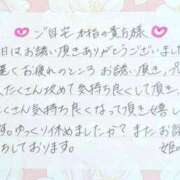 ご自宅 本指の貴方様
日はお誘い頂きありがとうございまし
遅くお疲れのところ お誘い頂き、
たくさん攻めて気持ち良くして頂き
くさん気持ち良くなって頂き嬉し
す。ゆっくり休めましたか？またお誘
しております。
姫